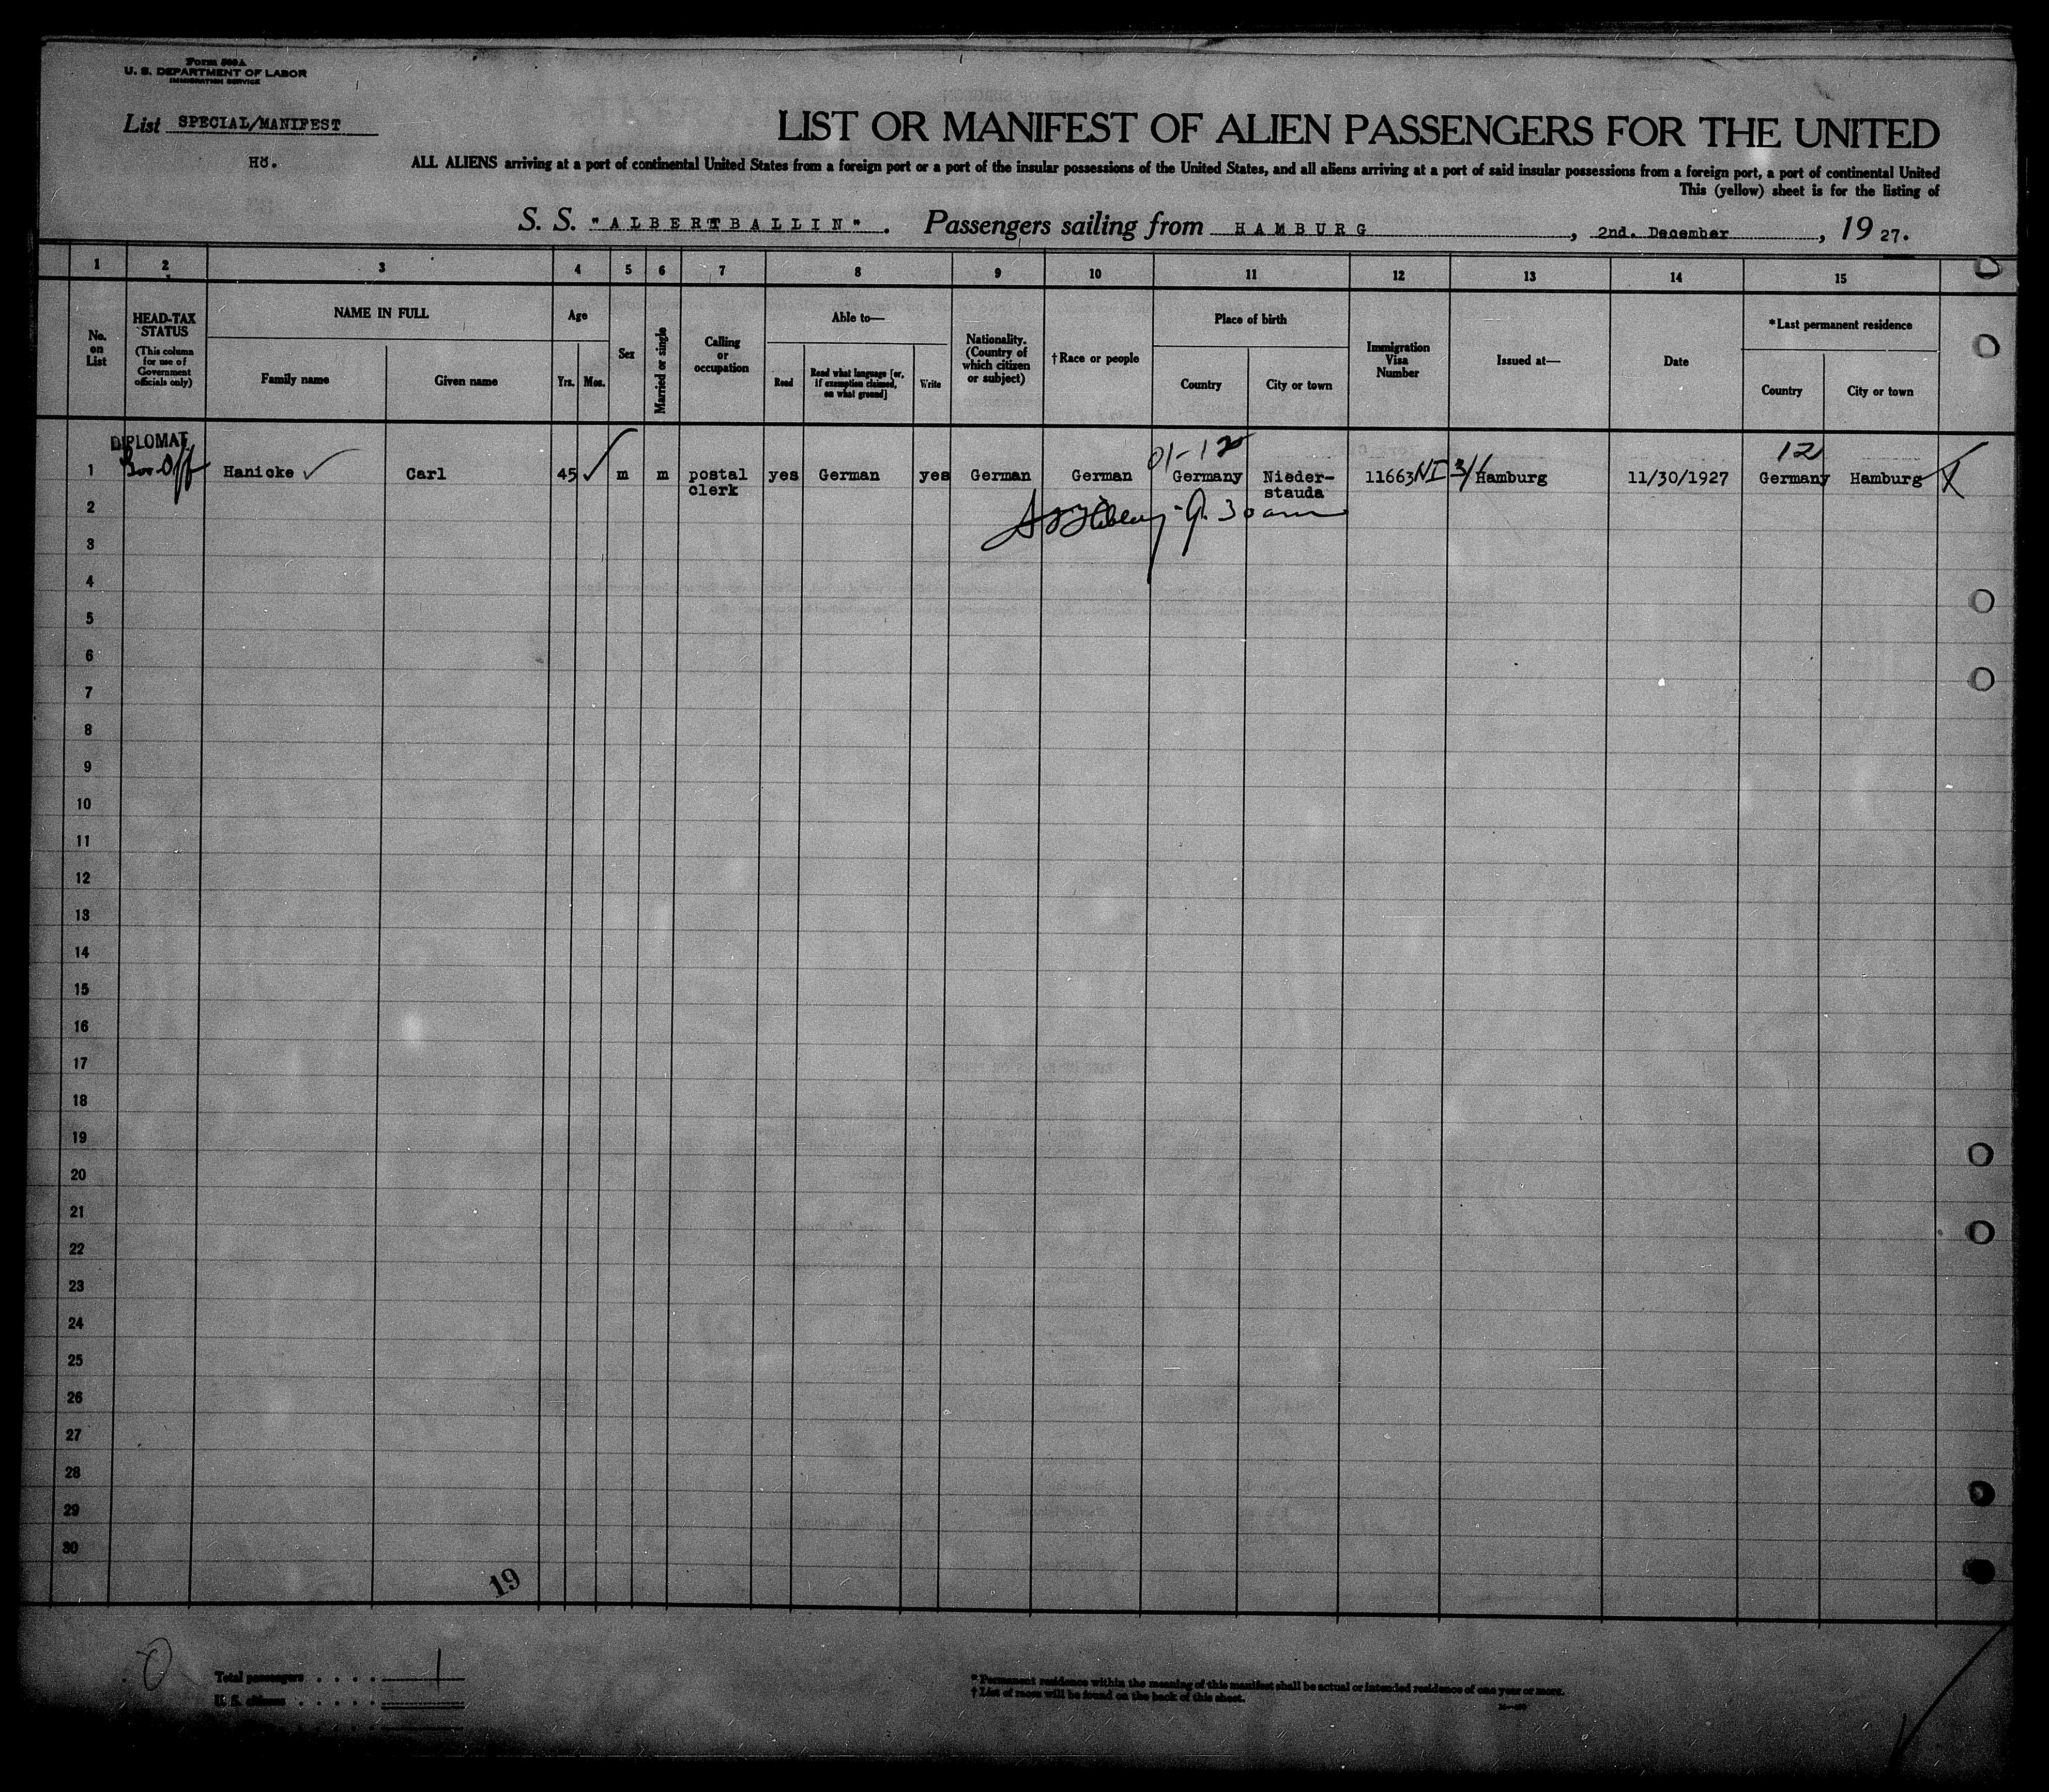 Form 500 A
U. S. DEPARTMENT OF LABOR
IMMIGRATION SERVICE
List SPECIAL/MANIFEST
LIST OR MANIFEST OF ALIEN PASSENGERS FOR THE UNITED
ALL ALIENS arriving at a port of continental United States from a foreign port or a port of the insular possessions of the United States, and all aliens arriving at a port of said insular possessions from a foreign port, a port of continental United
This (yellow) sheet is for the listing of
S. S. "ALBERT BALLIN". Passengers sailing from HAMBURG, 2nd. December, 1927.
1 2 3 4 5 6 7 8 9 10 11 12 13 14 15
No. on List
HEAD-TAX STATUS
(This column for use of Government officials only)
NAME IN FULL
Family name
Given name
Age
Yrs. Mos.
Sex
Married or single
Calling or occupation
Able to—
Read
Read what language [or, if exemption claimed, on what ground]
Write
Nationality. (Country of which citizen or subject)
†Race or people
Place of birth
Country
City or town
Immigration Visa Number
Issued at—
Date
*Last permanent residence
Country
City or town
DIPLOMAT
01-12
12
1 Hanicke Carl 45 m m postal clerk yes German yes German German Germany Nieder-stauda 11663 NI Hamburg 11/30/1927 Germany Hamburg
2
3
4
5
6
7
8
9
10
11
12
13
14
15
16
17
18
19
20
21
22
23
24
25
26
27
28
29
30
19
Total passengers . . . . 1
U. S. citizens . . . . .
* Permanent residence within the meaning of this manifest shall be actual or intended residence of one year or more.
† List of races will be found on the back of this sheet.